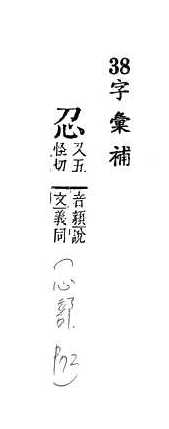 38字彙補
忍
又五
怪切
音說
文義同
(心部